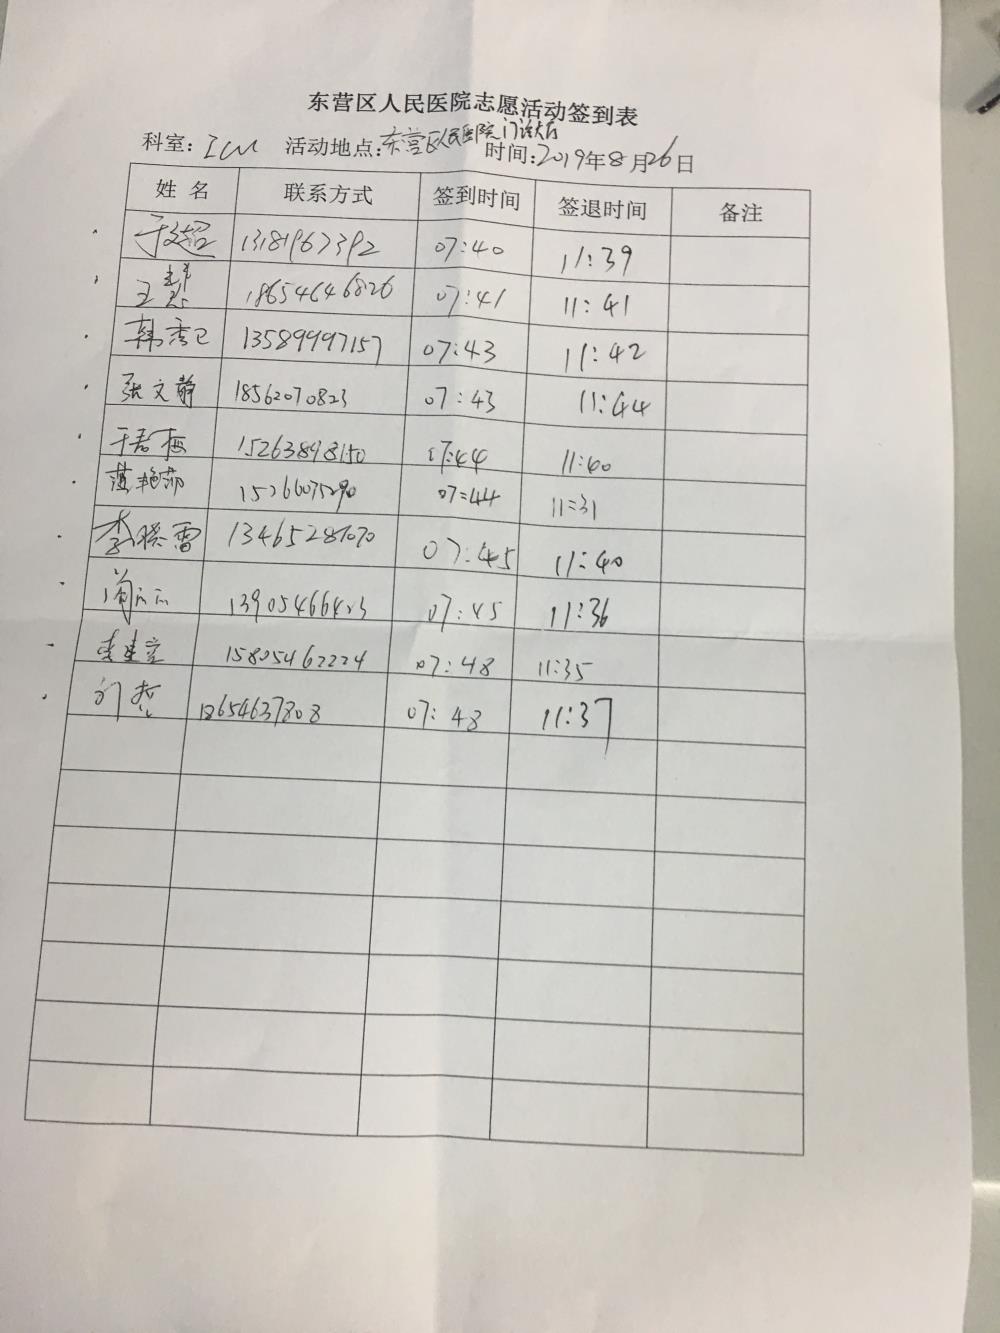 东营区人民医院志愿活动签到表
科室: ICU 活动地点:东营区人民医院门诊大厅 时间:2019年8月26日
姓 名 联系方式 签到时间 签退时间 备注
于超 13181967392 07:40 11:39
王慧 18654646826 07:41 11:41
韩秀卫 13589997157 07:43 11:42
张文静 18562070823 07:43 11:44
于君梅 15263898150 07:44 11:40
艳莎 07:44 11:31
李晓雷 13465287070 07:45 11:40
13905466423 07:45 11:36
李建 15805462224 07:48 11:35
18654637808 07:48 11:37